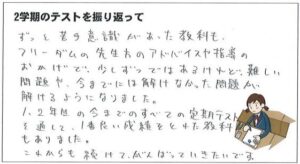 2学期のテストを振り返って
ずっと苦手意識があった教科も、
フリーダムの先生方のアドバイスや指導の
おかげで、少しずつではあるけれど、難しい
問題や、今までには解けなかった問題が
解けるようになりました。
1、2年生の今までのすべての定期テスト
を通して、1番良い成績をとれた教科
もありました。
これからも続けて、がんばっていきたいです。